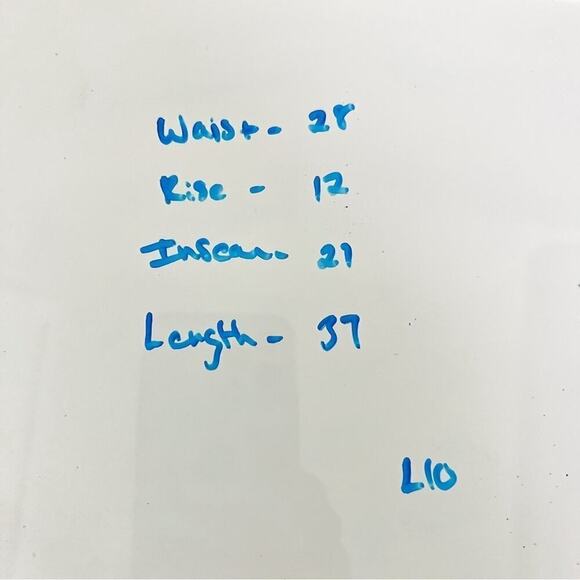 Waist - 28
Rise - 12
Inseam - 27
Length - 37
L10